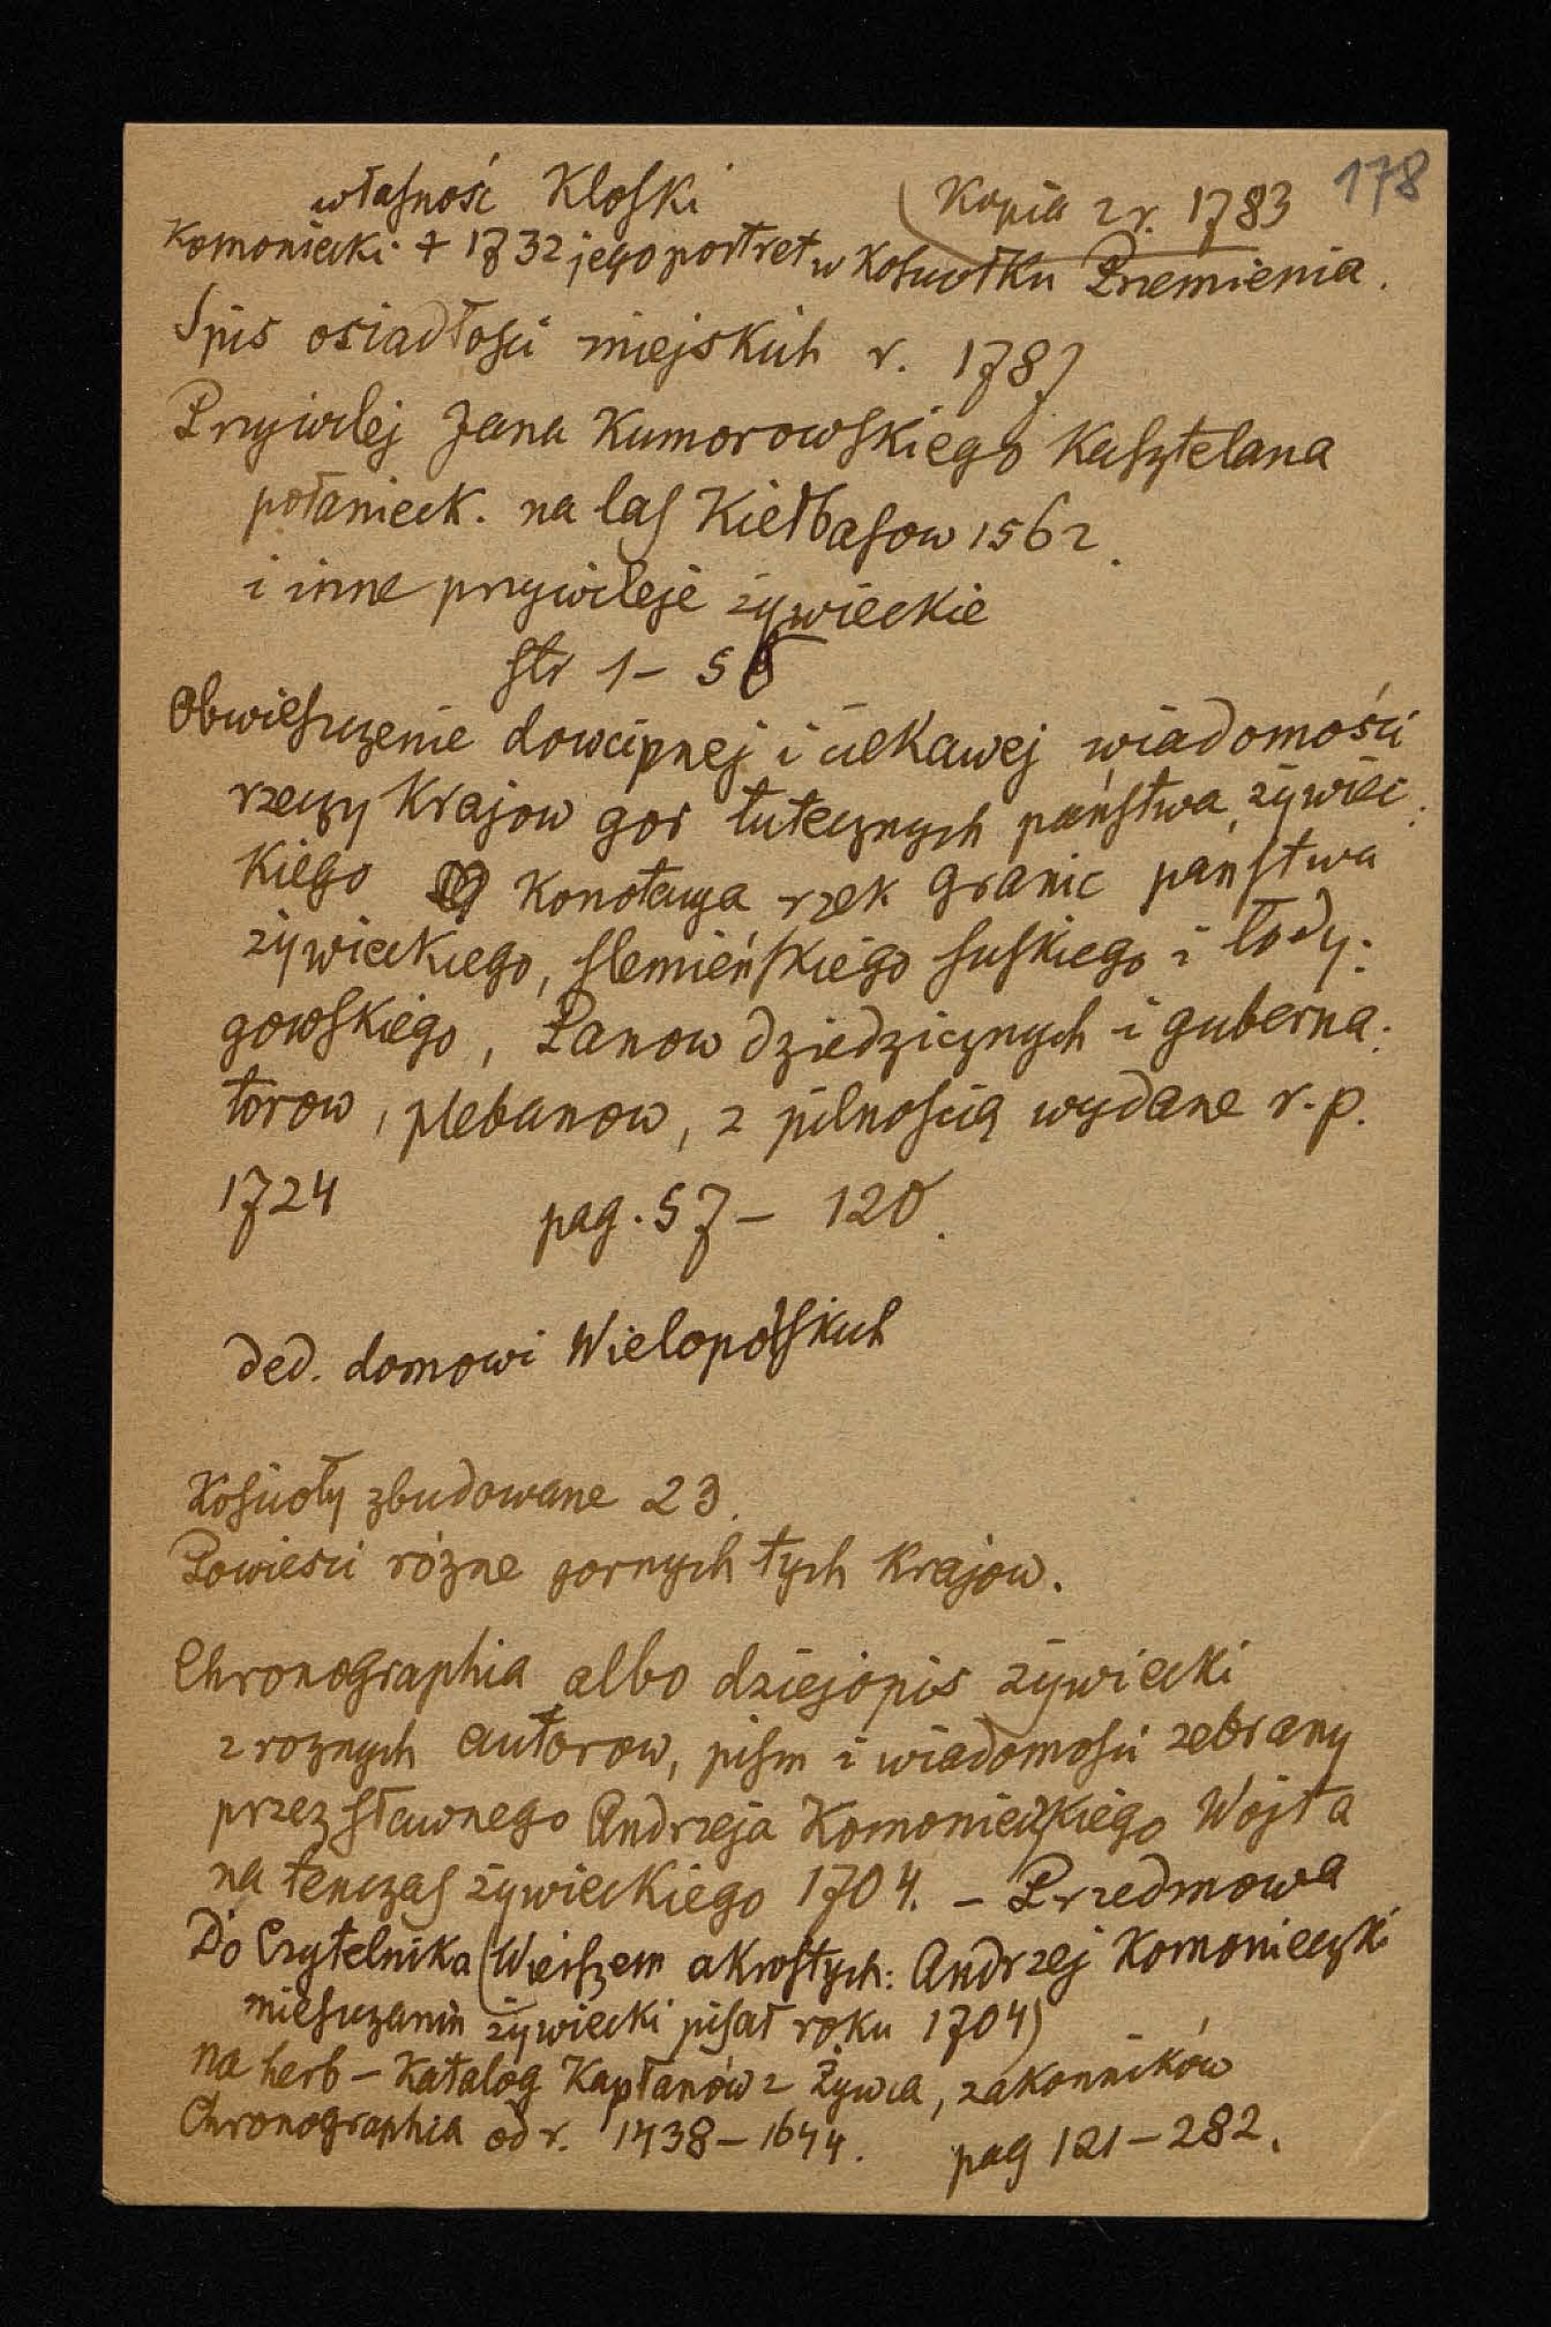 178
własność Kloski (Kopia z r. 1783
Komoniecki + 1732 jego portret w kościołku Przemienia.
Spis osiadłości miejskich r. 1787
Przywilej Jana Kumorowskiego Kasztelana
połanieck. na las Kiełbasow 1562.
i inne przywileje żywieckie
str 1 – 56
Obwieszczenie dowcipnej i ciekawej wiadomości
rzeczy Krajow gor tutecznych państwa żywiec:
kiego Konotacya rzek granic państwa
żywieckiego, slemieńskiego suskiego i łody:
gowskiego, Panow dziedzicznych i guberna:
torow, plebanow, z pilnością wydane r. p.
1724 pag. 57 – 120.
ded. domowi Wielopolskich
Kościoły zbudowane 23.
Powiesci rózne gornych tych Krajow.
Chronographia albo dziejopis żywiecki
z roznych autorow, pism i wiadomości zebrany
przez sławnego Andrzeja Komonieckiego Wójta
na tenczas żywieckiego 1704. – Przedmowa
Do Czytelnika (Wierszem akrostych: Andrzej Komoniecki
mieszczanin żywiecki pisał roku 1704)
na herb – Katalog Kapłanów z Żywca, zakonników
Chronographia od r. 1438 – 1644. pag 121 – 282.